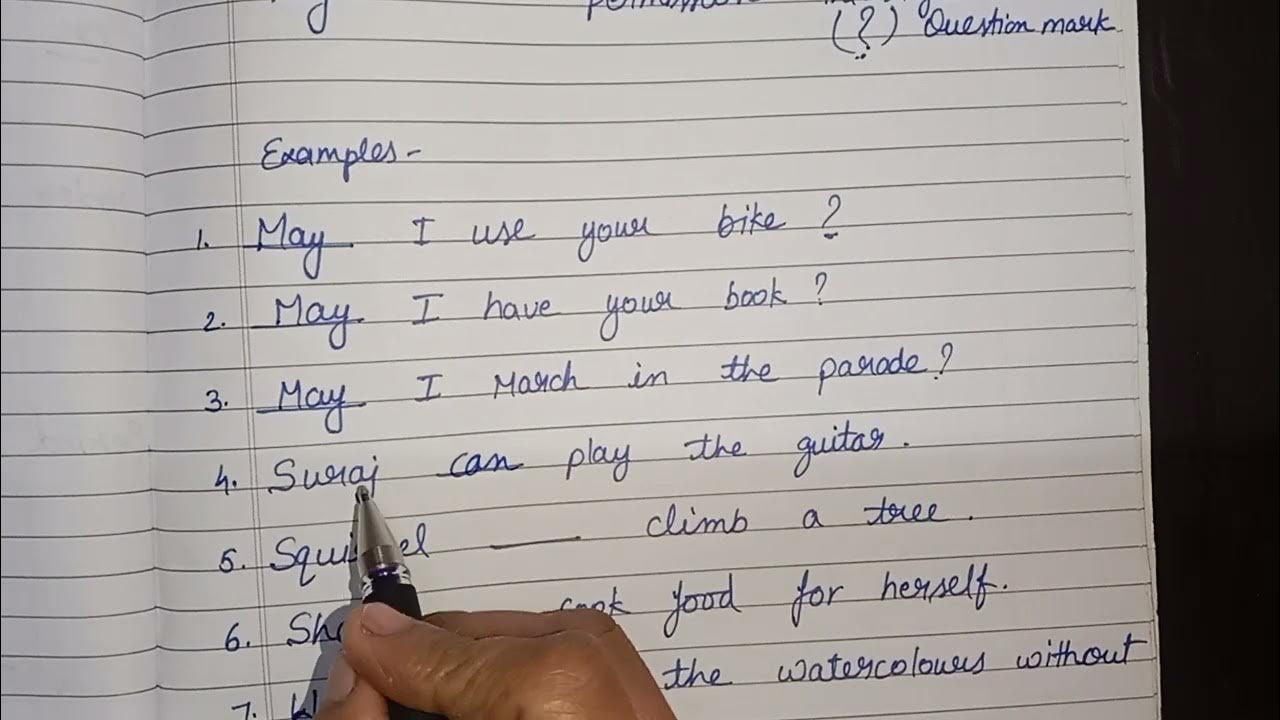 (?) Question mark
Examples -
1. May I use your bike ?
2. May I have your book ?
3. May I March in the parade ?
4. Suraj can play the guitar .
5. climb a tree .
6. cook food for herself .
7. the watercolours without